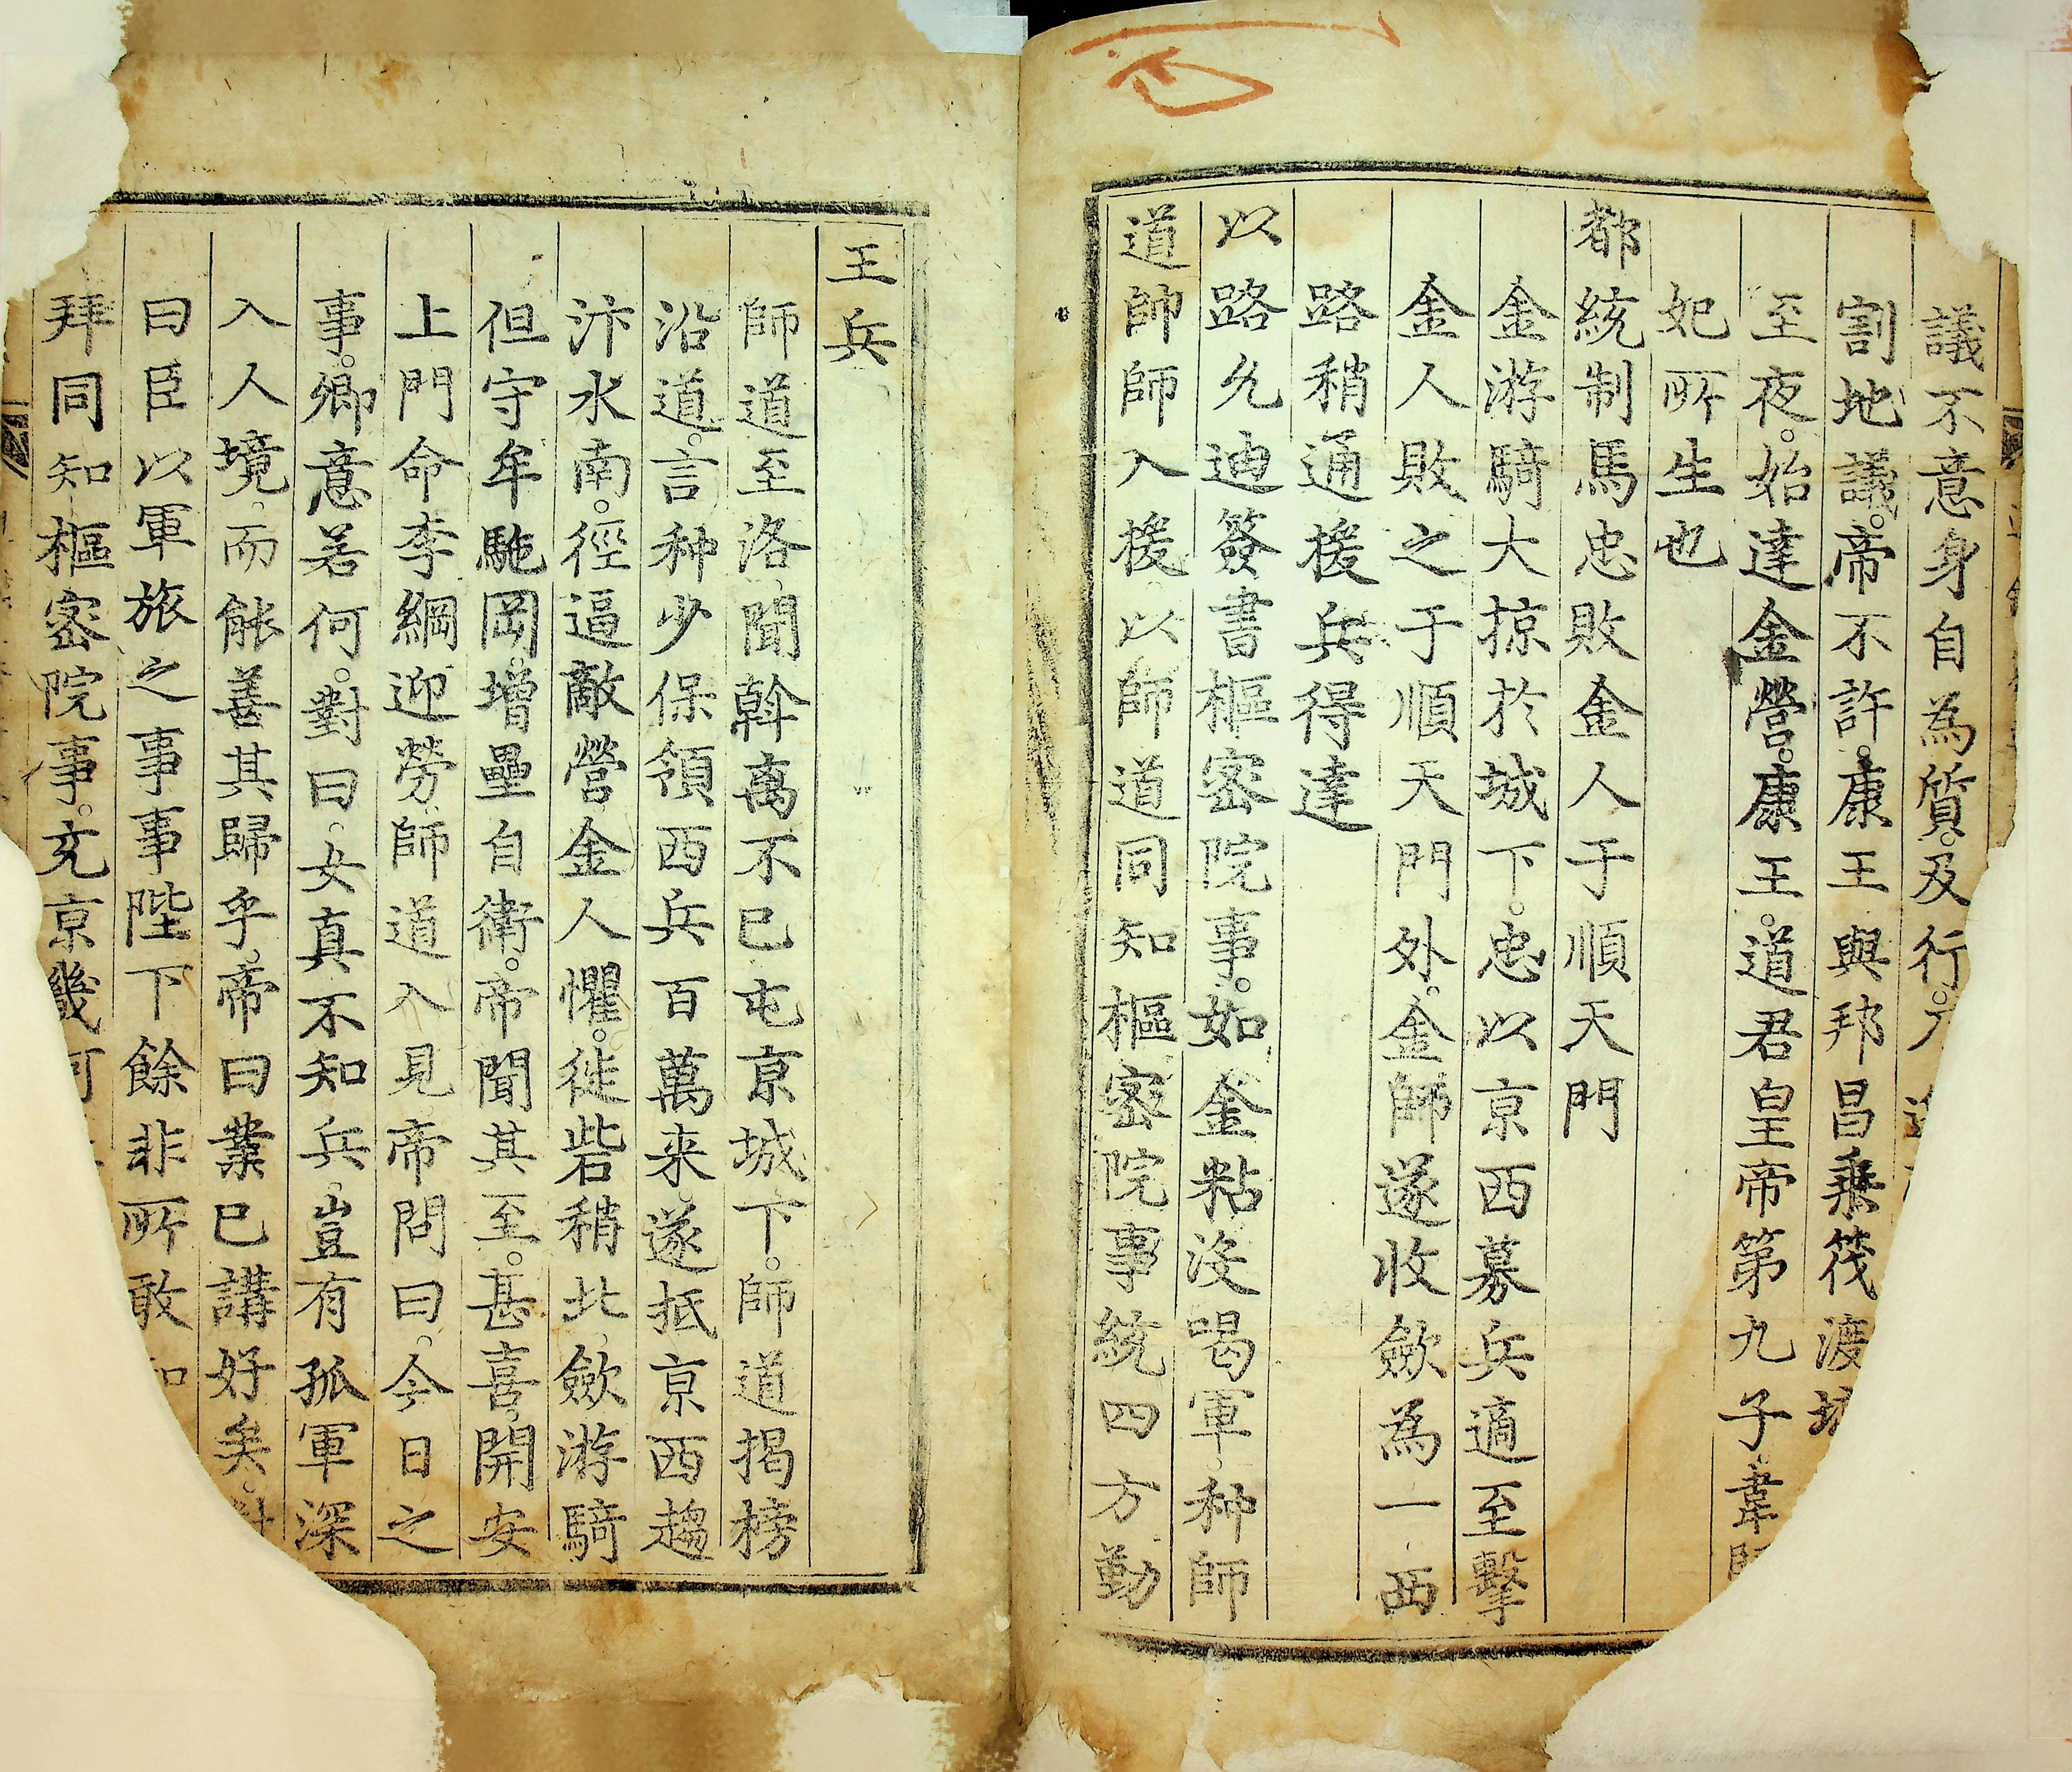 議不意身自為質及行
割地議帝不許康王與邦昌乗筏渡
至夜始達金營康王道君皇帝第九子韋
妃所生也
都統制馬忠敗金人于順天門
金游騎大掠於城下忠以京西募兵適至擊
金人敗之于順天門外金師遂收歛為一西
路稍通援兵得達
以路允迪簽書樞密院事如金粘没喝軍种師
道帥師入援以師道同知樞密院事統四方勤
王兵
師道至洛聞斡离不已屯京城下師道揭榜
沿道言种少保領西兵百萬来遂抵京西趨
汴水南徑逼敵營金人懼徙砦稍北歛游騎
但守牟駞岡增壘自衛帝聞其至甚喜開安
上門命李綱迎勞師道入見帝問曰今日之
事卿意若何對曰女真不知兵豈有孤軍深
入人境而能善其歸乎帝曰業已講好矣對
曰臣以軍旅之事事陛下餘非所敢
拜同知樞密院事充京畿河